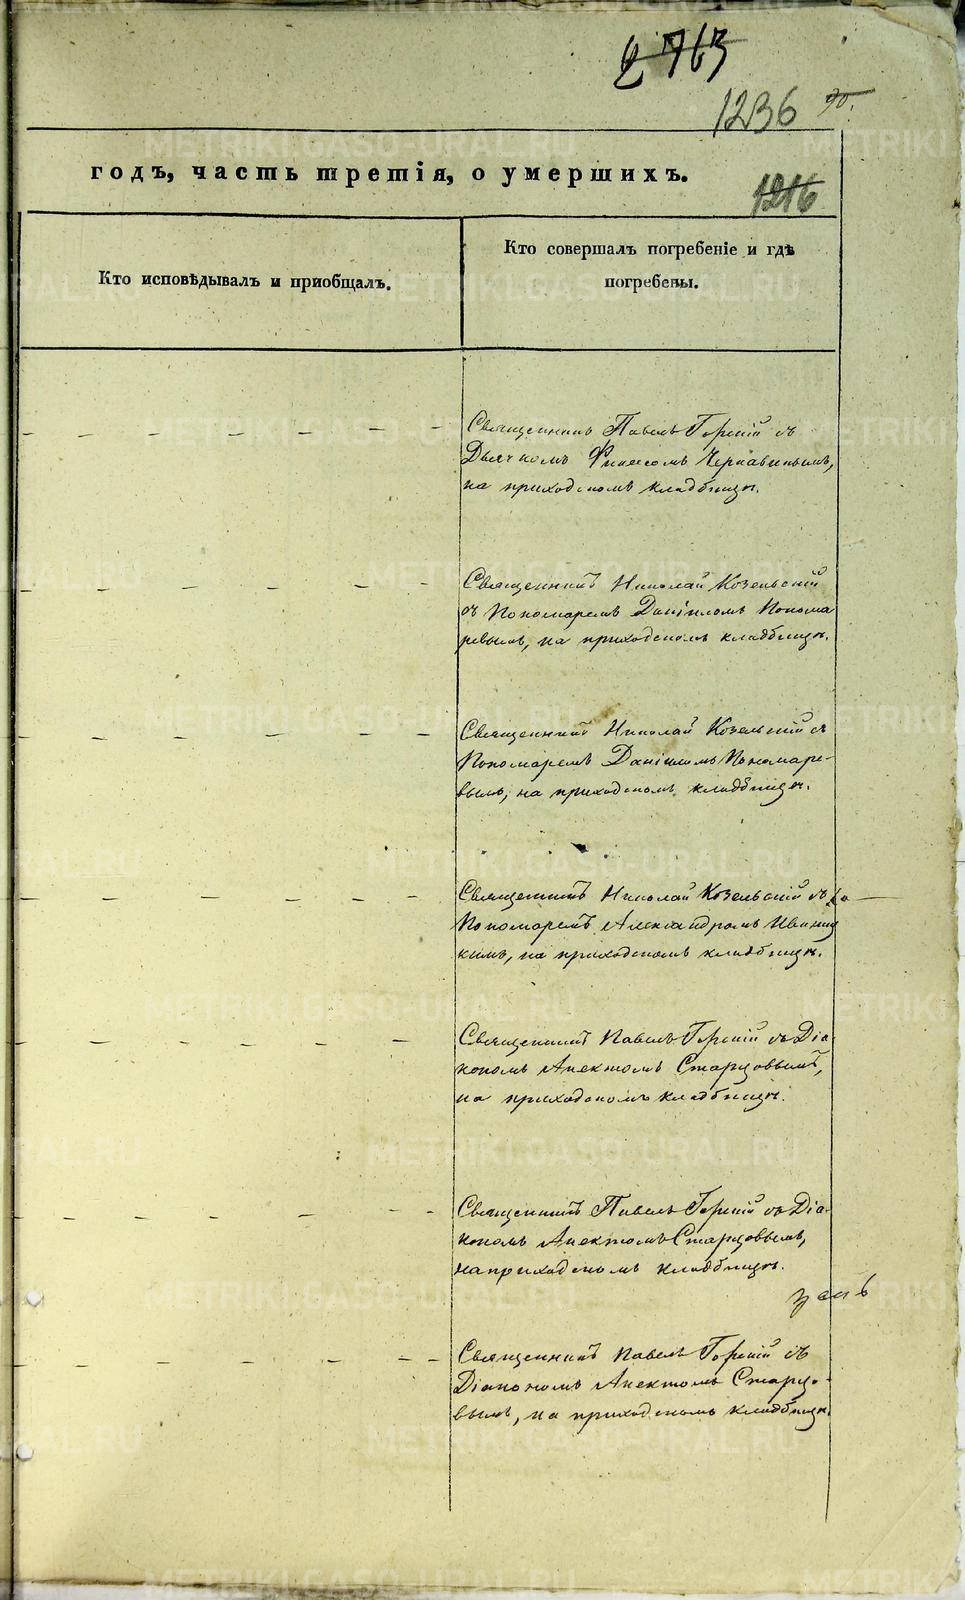 2763
1236 30.
годъ, часть третія, о умершихъ.
1216
Кто исповѣдывалъ и приобщалъ.
Кто совершалъ погребеніе и гдѣ
погребены.
Священникъ Павелъ Горскій съ
Дьячкомъ Финеесомъ Чернавинымъ,
на приходскомъ кладбищѣ.
Священникъ Николай Козельскій
съ Пономаремъ Даніиломъ Понома
ревымъ, на приходскомъ кладбищѣ.
Священникъ Николай Козельскій съ
Пономаремъ Даніиломъ Пономаре-
вымъ, на приходскомъ кладбищѣ.
Священникъ Николай Козельскій съ
Пономаремъ Александромъ Иваниц
кимъ, на приходскомъ кладбищѣ.
Священникъ Павелъ Горскій съ Діа
кономъ Анектомъ Старцовымъ,
на приходскомъ кладбищѣ.
Священникъ Павелъ Горскій съ Діа-
кономъ Анектомъ Старцовымъ,
на приходскомъ кладбищѣ.
Священникъ Павелъ Горскій съ
Діакономъ Анектомъ Старцо-
вымъ, на приходскомъ кладбищѣ.
METRIKI.GASO-URAL.RU